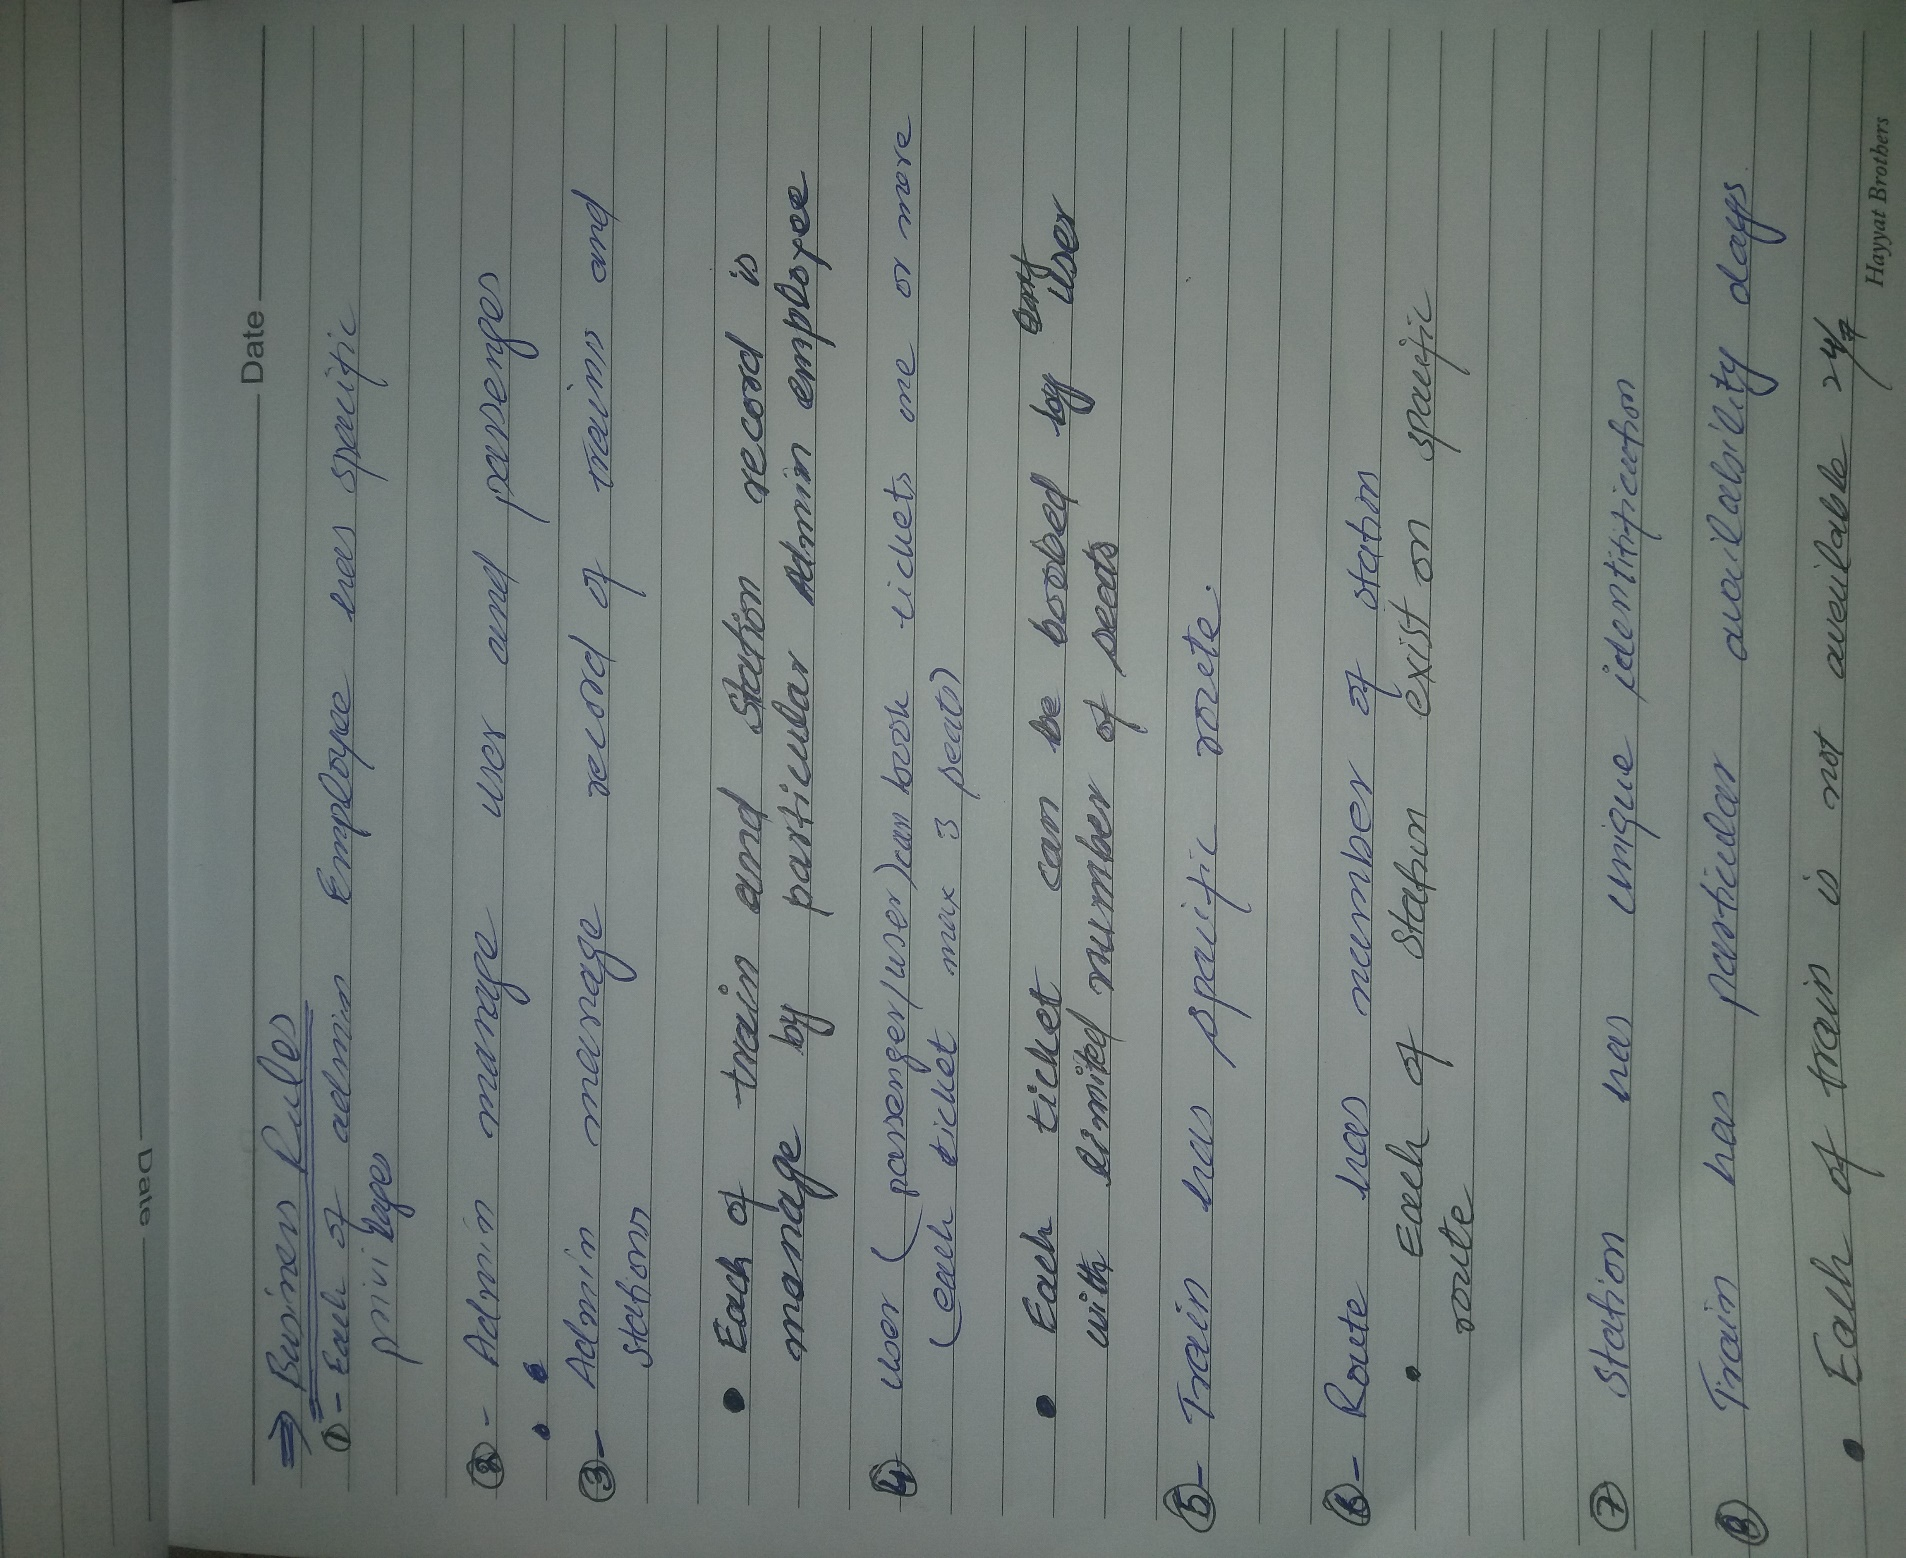 Date
Date
⇒ Business Rules
① - Each of admin Employe has specific
privilages
② - Admin manage user and passenges
③ - Admin manage record of trains and
stations
• Each of train and station record is
manage by particular Admin employee
④ user (passenger/user) can book tickets one or more
(each ticket max 3 seats)
• Each ticket can be booked by user
with limited number of seats
⑤ - Train has specific route.
⑥ - Route has number of station
• Each of station exist on specific
route
⑦ Station has unique identitification
⑧ Train has particular availabsility days.
• Each of train is not available 24/7
Hayyat Brothers